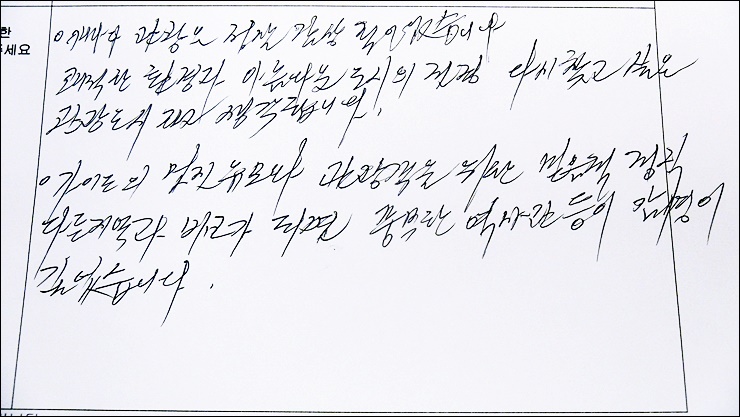 한
주세요
관광은 정말 감상 적이었습니다
쾌적한 환경과 아름다운 도시의 전경 다시찾고 싶은
관광도시 라고 생각됩니다.
가이드의 멋진 유모와 관광객을 위한 믿음책 정직
다른지역과 비교가 되면 풍부한 역사관 등이 인상
깊었습니다.